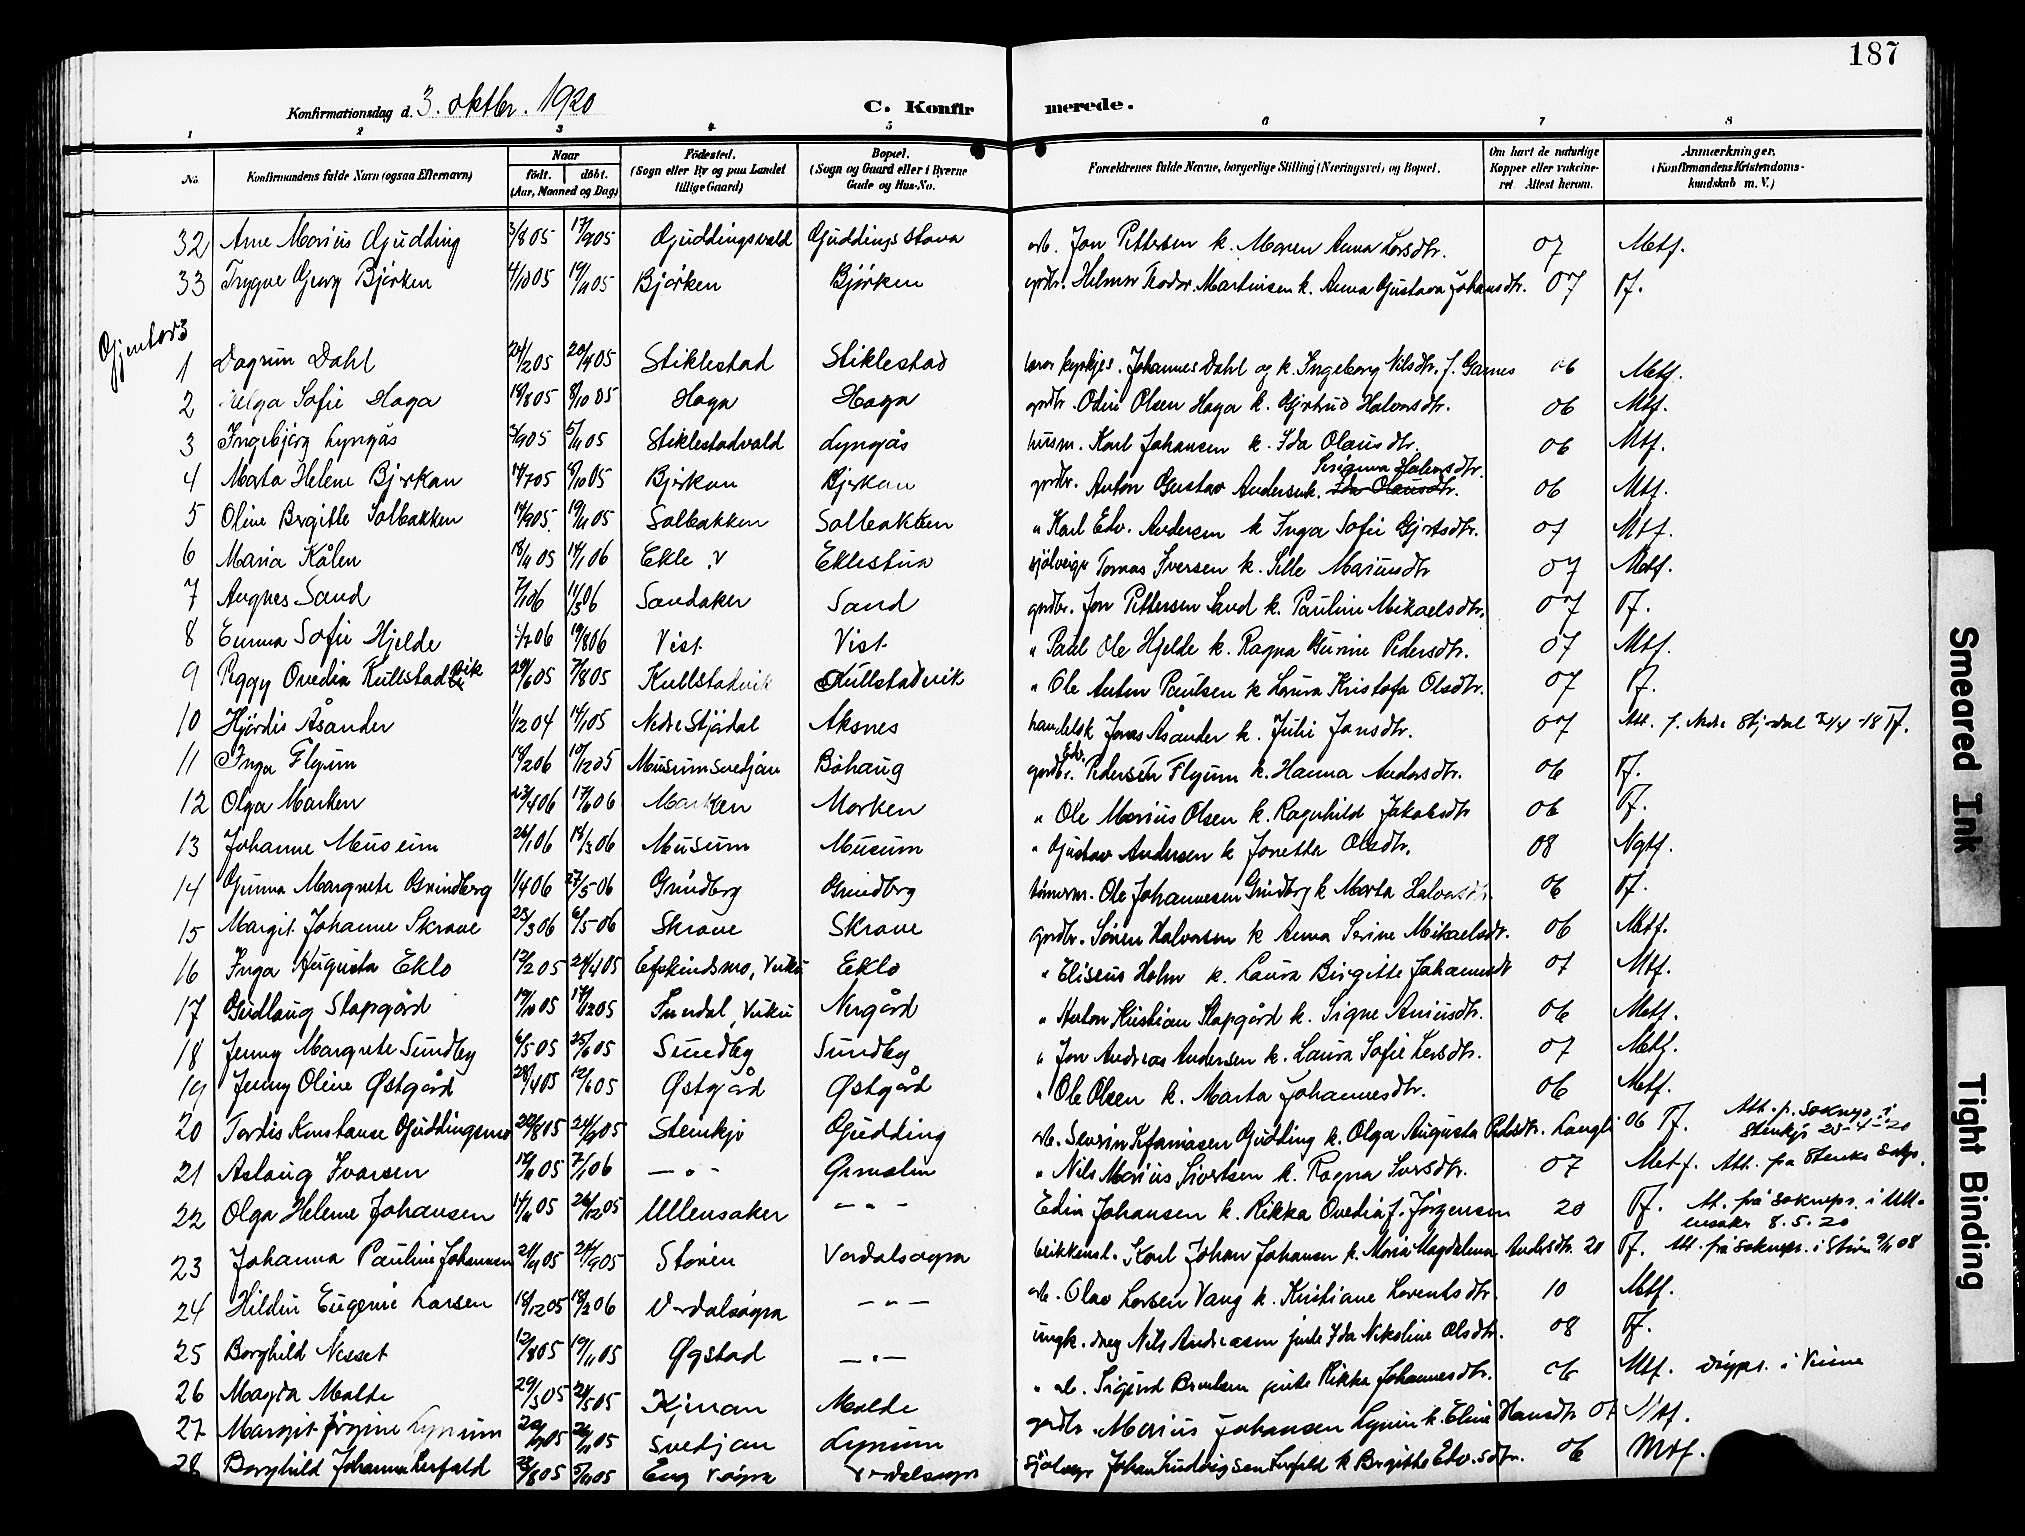 187
Konfirmationsdag d. 3. oktbr. 1920 C. Konfirmerede.
1 2 3 4 5 6 7 8
No. Konfirmandens fulde Navn (ogsaa Efternavn) Naar født. døbt. (Aar, Maaned og Dag) Fødested. (Sogn eller By og paa Landet tillige Gaard) Bopæl. (Sogn og Gaard eller i Byerne Gade og Hus-No. Forældrenes fulde Navne, borgerlige Stilling (Næringsvei) og Bopæl. Om havt de naturlige Kopper eller vaksineret Attest herom. Anmærkninger. (Konfirmandens Kristendomskundskab m. V.)
32 Arne Marius Gjudding 3/8 05 17/9 05 Gjuddingsvald Gjuddingsstava arb. Jon Pettersen k. Maren Anna Larsdtr. 07 Metf.
33 Trygve Georg Björken 4/10 05 19/11 05 Björken Björken grdbr. Helmer Teodor Martinsen k. Anna Gustava Johansdtr. 07 Tf.
Gjentor
1 Dagrun Dahl 24/2 05 20/4 05 Stiklestad Stiklestad Johannes Dahl og k. Ingeborg Nilsdtr. f. Garnes 06 Metf.
2 Helga Sofie Haga 19/8 05 8/10 05 Haga Haga grdbr. Odin Olsen Haga k. Gjertrud Halvorsdtr. 06 Mtf.
3 Ingebjörg Lyngås 3/9 05 5/11 05 Stiklestadvald Lyngås husm. Karl Johansen k. Ida Olausdtr. 06 Mtf.
4 Marta Helene Björkan 14/7 05 8/10 05 Björkan Björkan grdbr. Anton Gustav Andersen k. Ida Olausdtr. Halvorsdtr. 06 Mtf.
5 Oline Brgitte Solbakken 14/9 05 19/11 05 Solbakken Solbakken " Karl Edv. Andersen k Inga Sofie Gjertsdtr. 07 Mtf.
6 Maria Kålen 18/11 05 14/1 06 Ekle .v Eklestua sjölveigr Tomas Iversen k. Sille Mariusdtr 07 Metf.
7 Augnes Sand 7/1 06 11/3 06 Sandaker Sand grdbr. Jon Pettersen Sand k. Pauline Mikaelsdtr. 07 Tf.
8 Emma Sofie Hjelde 06 19/8 06 Vist Vist " Paul Ole Hjelde k. Ragna Gurine Pedersdtr. 07 Mtf.
9 Peggy Ovedia Kullstadvik 29/6 05 7/8 05 Kullstadvik Kullstadvik " Ole Anton Paulsen k Laura Kristofa Olsdtr. 07 Tf.
10 Hjördis Åsander 1/12 04 14/1 05 Nedre Stjördal Aksnes handelsk Jonas Åsander k. Julie Jansdtr. 07 Att. f. Nedre Stjördal -18 Tf.
11 Inga Flyum 18/2 06 10/12 05 Musumsvedjan Böhaug grdbr. Edv. Pedersen Flyum k. Hanna Andersdtr. 06 Tf.
12 Olga Marken 23/4 06 17/6 06 Marken Marken " Ole Marius Olsen k. Ragnhild Jakobsdtr 06 Tf.
13 Johanne Museum 26/1 06 18/3 06 Musum Musum " Gustav Andersen k Jonetta Olsdtr. 08 Ngtf.
14 Gunna Margrete Grindberg 1/4 06 27/5 06 Grindberg Grindberg tömerm. Ole Johannesen Grindberg k Marta Halvorsdtr. 06 Tf.
15 Margit Johanne Skrove 25/3 06 6/5-06 Skrove Skrove grdbr. Sören Halvorsen k Anna Serine Mikaelsdtr. 06 Mtf.
16 Inga Augusta Eklo 12/2 05 24/4 05 Efskindsmo, Vuku Eklo " Eliseus Holm k. Laura Birgitte Johannesdtr 07 Mtf.
17 Gudlaug Stapgård 19/10 05 17/12 05 Inndal, Vuku Nergård " Anton Kristian Stapgård k. Signe Aniusdtr. 06 Metf.
18 Jenny Margrete Sundby 6/5 05 25/6 05 Sundby Sundby " Jon Andreas Andersen k. Laura Sofie Larsdtr. 07 Metf.
19 Jenny Oline Østgård 28/4 05 12/6 05 Østgård Østgård " Ole Olsen k. Marta Johannesdtr. 06 Metf.
20 Tordis Konstanse Gjuddingsmo 20/8 05 24/9 05 Stenkjr Gjudding arb. Severin Gjudding k. Olga Augusta Pedersdtr. Langli 06 Tf. Att. p. soknepr. i
Stenkjr 25-4-20
21 Aslaug Ivarsen 12/11 05 7/1 06 — " - nils Marius Sivertsen k. Ragna Iversdtr. 07 Metf. Att. fra Stenkr sokpr.
22 Olga Helene Johansen 14/11 05 26/12 05 Ullensaker - " - Edin Johansen k. Rikka Ovedia f. Jörgensen 20 Tf. At. frå soknepr. i Ull-
ensakr 8.5.20
23 Johanna Pauline Johannesen 05 24/9 05 Stören Verdalsøgra Karl Johan Johansen k. Maria Magdalena Andersdtr. 20 Tf. Att. frå soknepr. i Stören 9/11 08
24 Hildur Eugenie Larsen 19/12 05 18/2 06 Verdalsøgra - " - arb. Olav Larsen Vang k. Kristiane Lorentsdtr. 10 Mtf.
25 Borghild Nesset 12/8 05 19/11 05 Øgstad — " — ungk. dreg Nils Andreasen jente Ida Nikoline Olsdtr. 08 Tf.
26 Magda Molde 29/3 05 21/5 05 Kjnran Molde " arb. Sigurd jente Rikka Johannesdtr. 06 Mtf. i Vinne
27 Margit Jörgine Lynum 05 26/11 05 Svedjan Lynum grdbr. Marius Johansen Lynum k. Eline Hansdtr 07 Mtf.
28 Borghild Johanna Lerfald 28/8 05 5/11 05 Eng v.øgra Verdalsøgra sjölveigr Johan Ludvigsen Lerfald k Birgitte Edv.sdtr. 06 Mtf.
Smeared Ink
Tight Binding